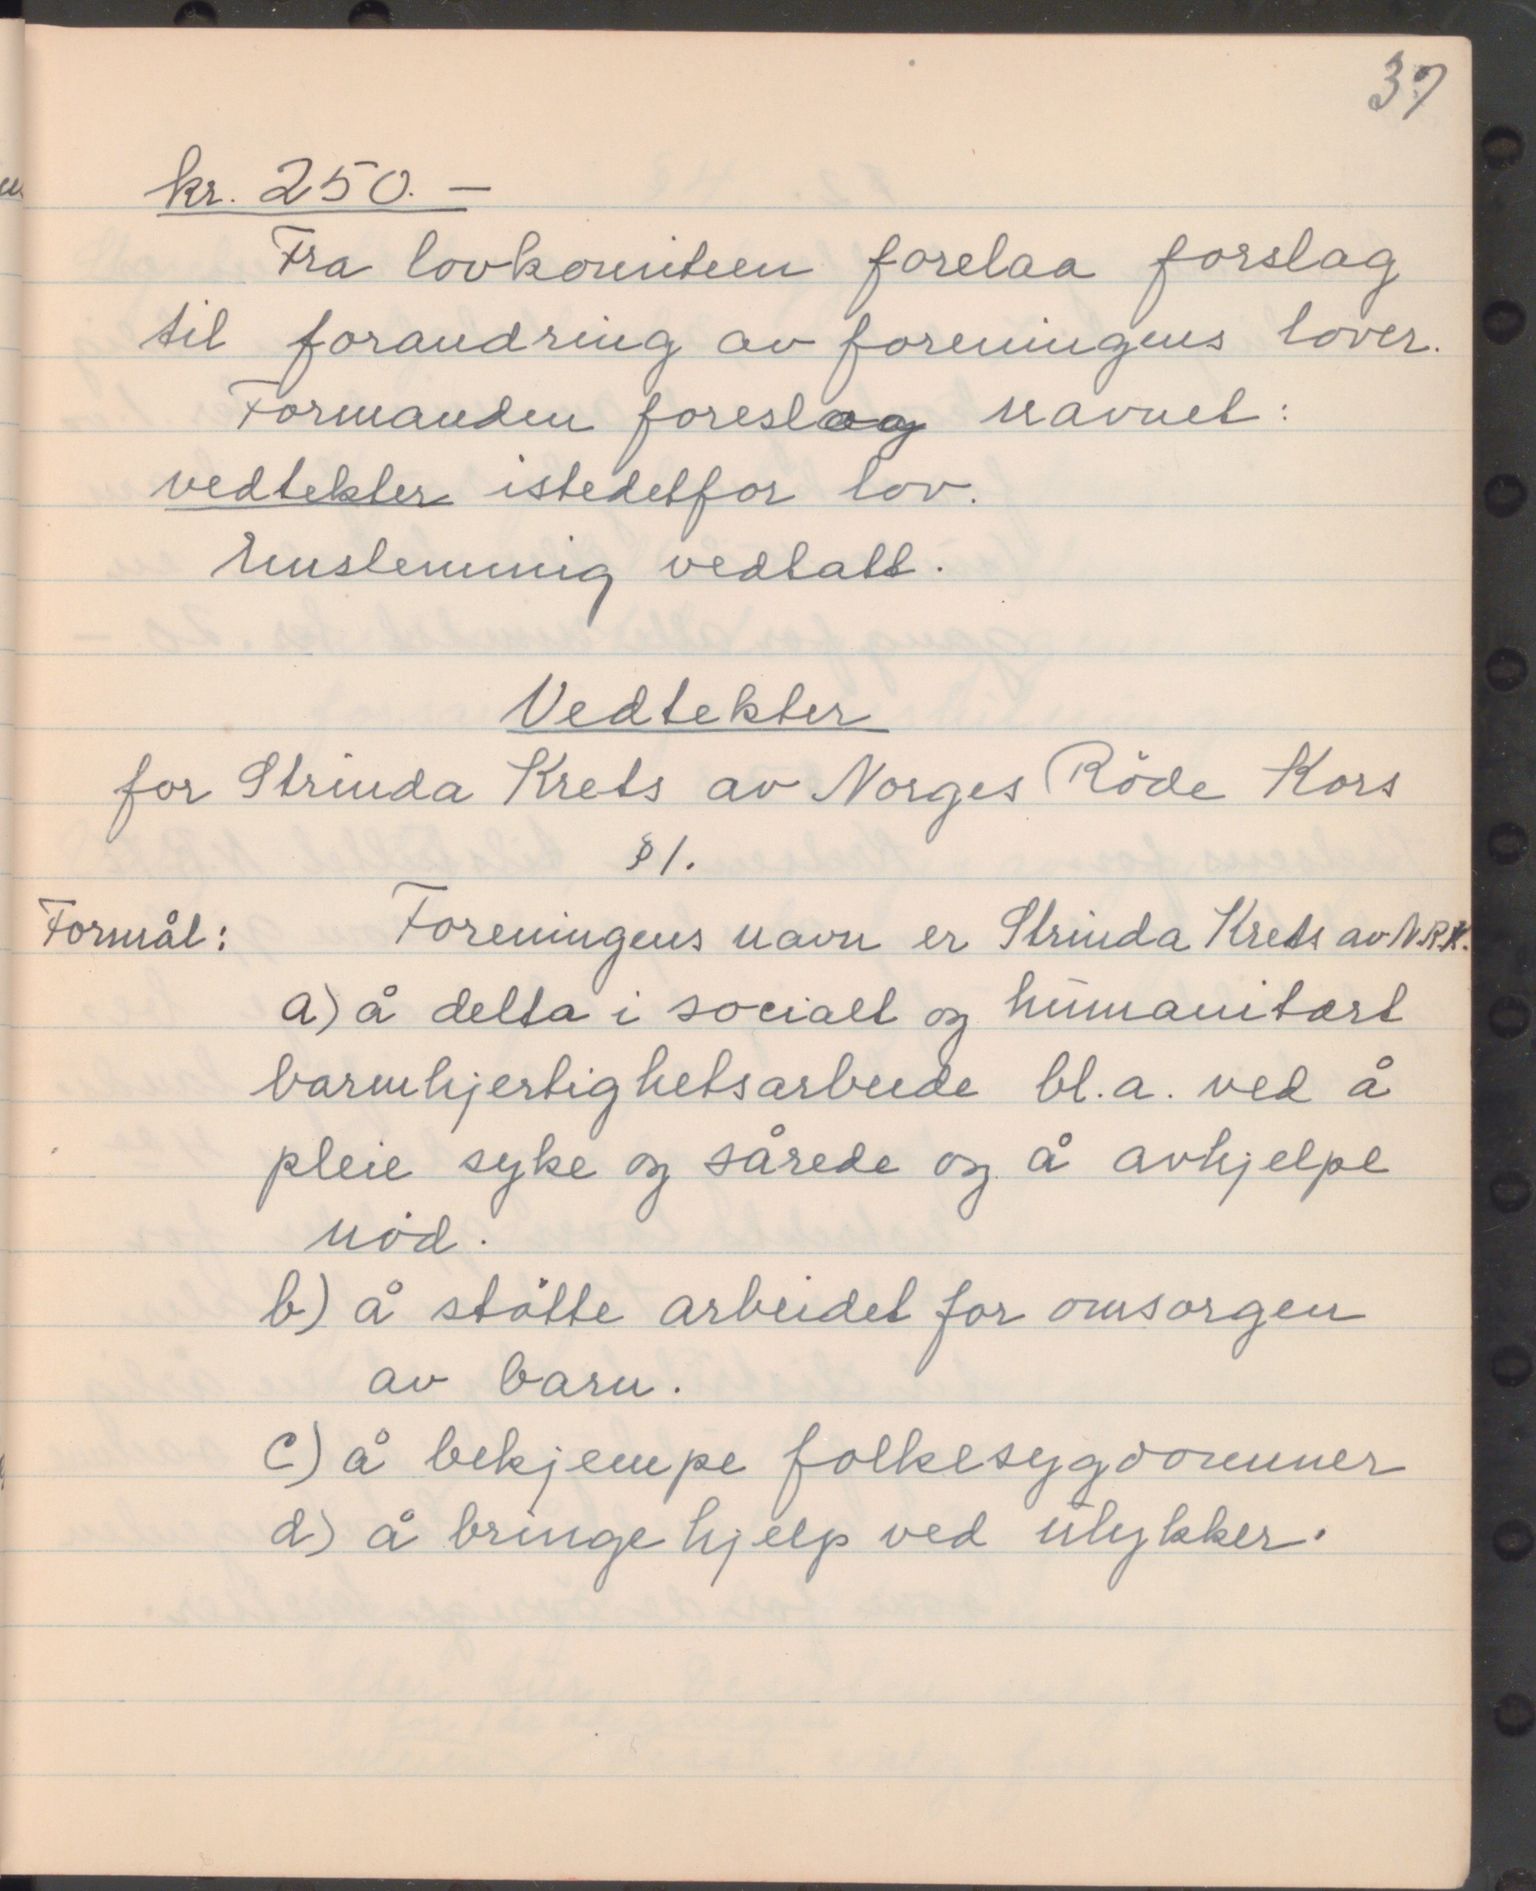 37
kr. 250.-
Fra lovkomiteen forelaa forslag
til forandring av foreningens lover.
Formanden foreslog navnet:
vedtekter istedetfor lov.
Enstemmig vedtatt.
Vedtekter
for Strinda Krets av Norges Röde Kors
§ 1.
Formål: Foreningens navn er Strinda Krets av N.R.K.
a) å delta i socialt og humanitært
barmhjertighetsarbeide bl.a. ved å
pleie syke og sårede og å avhjelpe
nöd.
b) å stötte arbeidet for omsorgen
av barn.
c) å bekjempe folkesygdommer
d) å bringe hjelp ved ulykker.